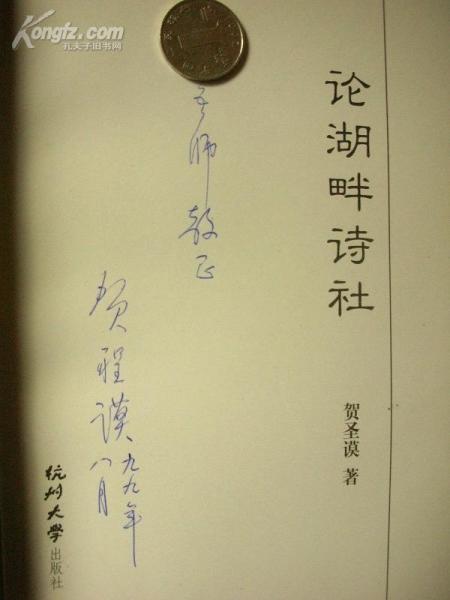 Kongfz.com
孔夫子旧书网
论湖畔诗社
贺圣谟 著
师教正
贺聖谟
九九年
八月
杭州大学
出版社